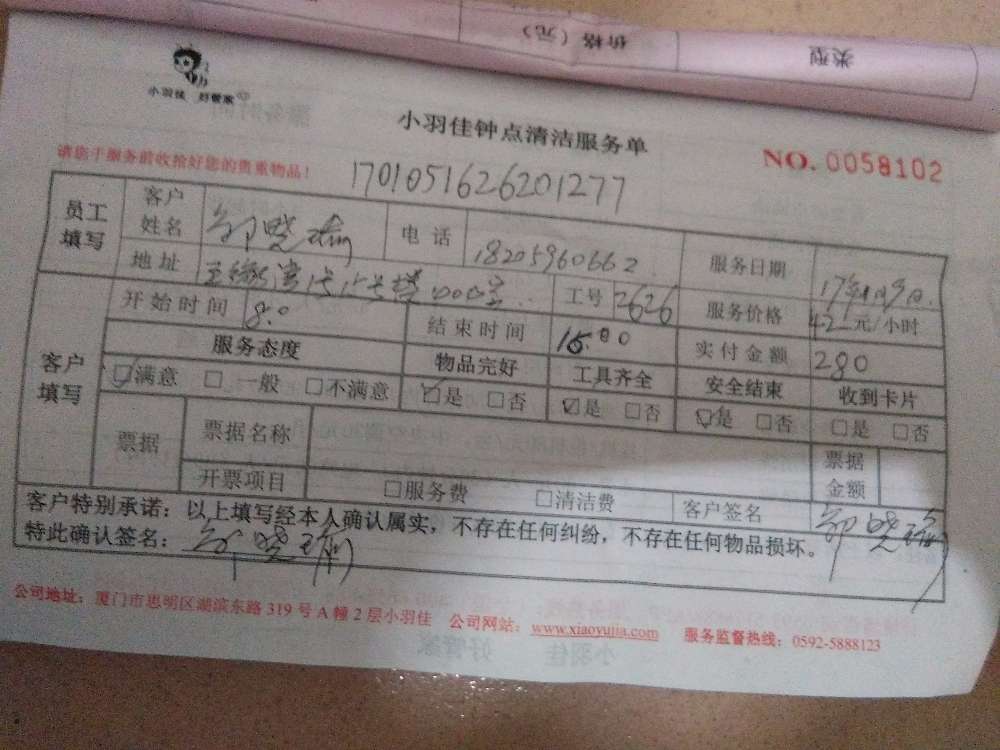 类型
价格（元）
小羽佳 好管家
小羽佳钟点清洁服务单
NO. 0058102
请您于服务前收拾好您的贵重物品！
1701051626201277
员工填写
客户姓名
电话 18205960662
服务日期 17年1月9日
地址
工号 2626
服务价格 42元/小时
客户填写
开始时间 8:0
结束时间 15:00
实付金额 280
服务态度 物品完好 工具齐全 安全结束 收到卡片
☑满意 □一般 □不满意 ☑是 □否 ☑是 □否 ☑是 □否 □是 □否
票据
票据名称
票据金额
开票项目 □服务费 □清洁费 客户签名
客户特别承诺：以上填写经本人确认属实，不存在任何纠纷，不存在任何物品损坏。
特此确认签名：
公司地址：厦门市思明区湖滨东路 319 号 A 幢 2 层小羽佳 公司网站：www.xiaoyujia.com 服务监督热线：0592-5888123
小羽佳 好管家